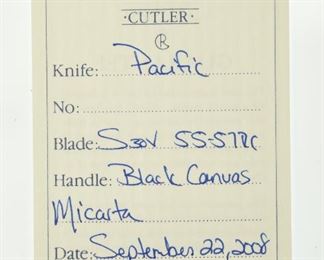 ·CUTLER·
®
Knife: Pacific
No:
Blade: S30V 55-57RC
Handle: Black Canvas
Micarta
Date: September 22, 2008